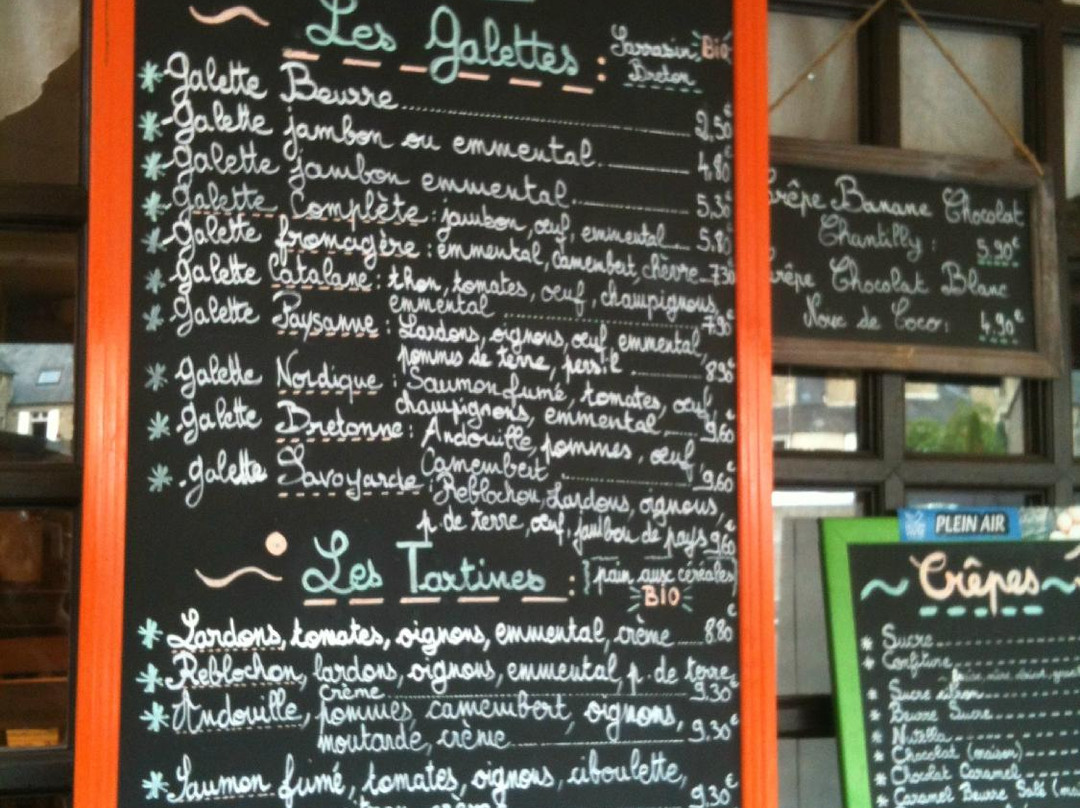 Les Galettes : Sarrasin Bio
Breton
* Galette Beurre 2,50€
* Galette jambon ou emmental 4,80€
* Galette jambon emmental 5,30€
* Galette Complète : jambon, œuf, emmental 5,80€
* Galette fromagère : emmental, Camembert, chèvre 7,30€
* Galette Catalane : thon, tomates, œuf, champignons,
emmental 7,90€
* Galette Paysanne : Lardons, oignons, œuf, emmental,
pommes de terre, persil 8,90€
* Galette Nordique : Saumon fumé, tomates, œuf,
champignons, emmental 9,60€
* Galette Bretonne : Andouille, pommes, œuf,
Camembert 9,60€
* Galette Savoyarde : Reblochon, Lardons, oignons,
p. de terre, œuf, jambon de pays 9,60€
Les Tartines : [pain aux céréales]
BIO
* Lardons, tomates, oignons, emmental, crème 8,80€
* Reblochon, lardons, oignons, emmental, p. de terre,
crème 9,30€
* Andouille, pommes, camembert, oignons,
moutarde, crème 9,30€
* Saumon fumé, tomates, oignons, ciboulette,
9,30€
rêpe Banane Chocolat
Chantilly : 5,90€
rêpe Chocolat Blanc
Noix de Coco : 4,90€
PLEIN AIR
Crêpes
* Sucre
* Confiture
* Sucre citron
* Beurre Sucre
* Nutella
* Chocolat (maison)
* Chocolat Caramel
* Caramel Beurre Salé (ma